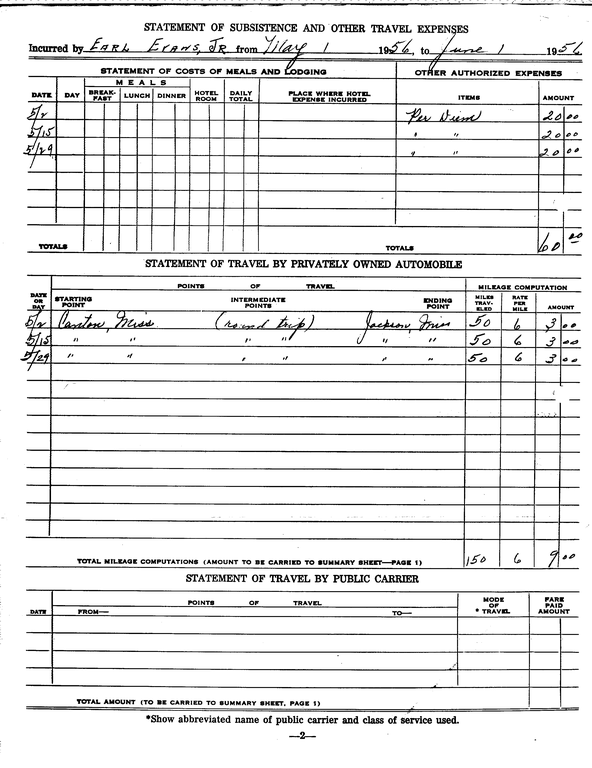 STATEMENT OF SUBSISTENCE AND OTHER TRAVEL EXPENSES
Incurred by Earl Evans, Jr from May 1 1956, to June 1 1956
STATEMENT OF COSTS OF MEALS AND LODGING OTHER AUTHORIZED EXPENSES
MEALS
DATE DAY BREAK-FAST LUNCH DINNER HOTEL ROOM DAILY TOTAL PLACE WHERE HOTEL EXPENSE INCURRED ITEMS AMOUNT
5/2 Per Diem 20 00
5/15 " " 20 00
5/29 " " 20 00
TOTALS TOTALS 60 00
STATEMENT OF TRAVEL BY PRIVATELY OWNED AUTOMOBILE
POINTS OF TRAVEL MILEAGE COMPUTATION
DATE OR DAY STARTING POINT INTERMEDIATE POINTS ENDING POINT MILES TRAV-ELED RATE PER MILE AMOUNT
5/2 Canton, Miss (round trip) Jackson, Miss 50 6 3 00
5/15 " " " " " " 50 6 3 00
5/29 " " " " " " 50 6 3 00
TOTAL MILEAGE COMPUTATIONS (AMOUNT TO BE CARRIED TO SUMMARY SHEET—PAGE 1) 150 6 9 00
STATEMENT OF TRAVEL BY PUBLIC CARRIER
POINTS OF TRAVEL
DATE FROM— TO— MODE OF * TRAVEL FARE PAID AMOUNT
TOTAL AMOUNT (TO BE CARRIED TO SUMMARY SHEET, PAGE 1)
*Show abbreviated name of public carrier and class of service used.
—2—